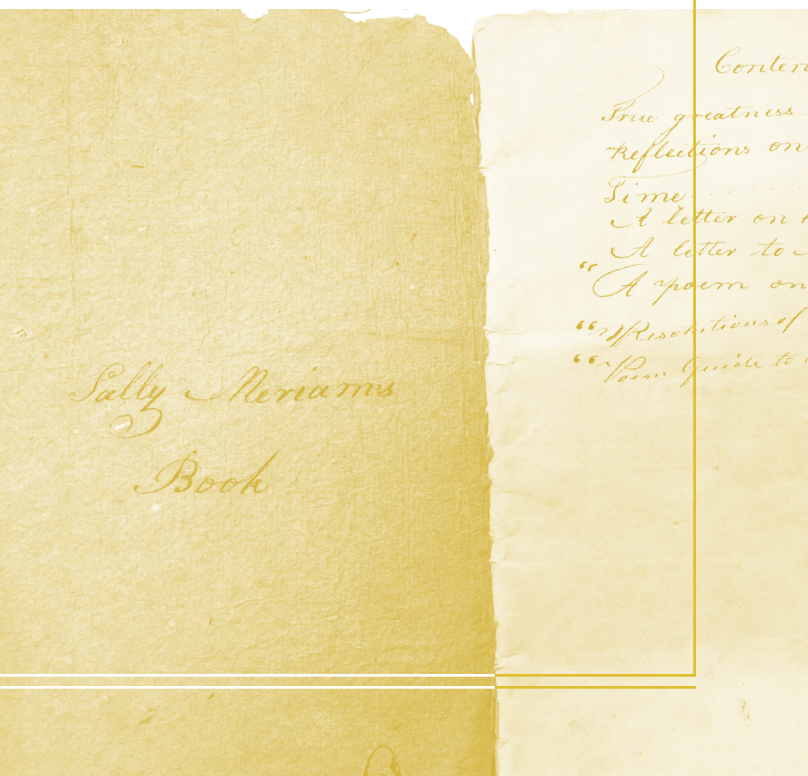 Sally Meriams
Book
Conten
True greatness
Reflections on
Time
A letter on
A letter to
"A poem on
"Resolutions of
"Poem Guide to